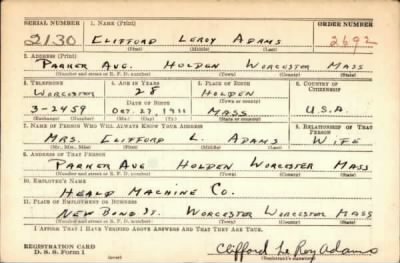 SERIAL NUMBER 1. NAME (Print) ORDER NUMBER
2130 CLIFFORD LEROY ADAMS 2692
(First) (Middle) (Last)
2. ADDRESS (Print)
PARKER AVE. HOLDEN WORCESTER MASS
(Number and street or R. F. D. number) (Town) (County) (State)
3. TELEPHONE 4. AGE IN YEARS 5. PLACE OF BIRTH 6. COUNTRY OF CITIZENSHIP
WORCESTER 28 HOLDEN
DATE OF BIRTH (Town or county)
3-2459 OCT. 27 1911 MASS U.S.A.
(Exchange) (Number) (Mo.) (Day) (Yr.) (State or country)
7. NAME OF PERSON WHO WILL ALWAYS KNOW YOUR ADDRESS 8. RELATIONSHIP OF THAT PERSON
MRS. CLIFFORD L. ADAMS WIFE
(Mr., Mrs., Miss) (First) (Middle) (Last)
9. ADDRESS OF THAT PERSON
PARKER AVE HOLDEN WORCESTER MASS
(Number and street or R. F. D. number) (Town) (County) (State)
10. EMPLOYER'S NAME
HEALD MACHINE CO.
11. PLACE OF EMPLOYMENT OR BUSINESS
NEW BOND ST. WORCESTER WORCESTER MASS
(Number and street or R. F. D. number) (Town) (County) (State)
I AFFIRM THAT I HAVE VERIFIED ABOVE ANSWERS AND THAT THEY ARE TRUE.
REGISTRATION CARD
D. S. S. Form 1 (over) Clifford Le Roy Adams
(Registrant's signature)